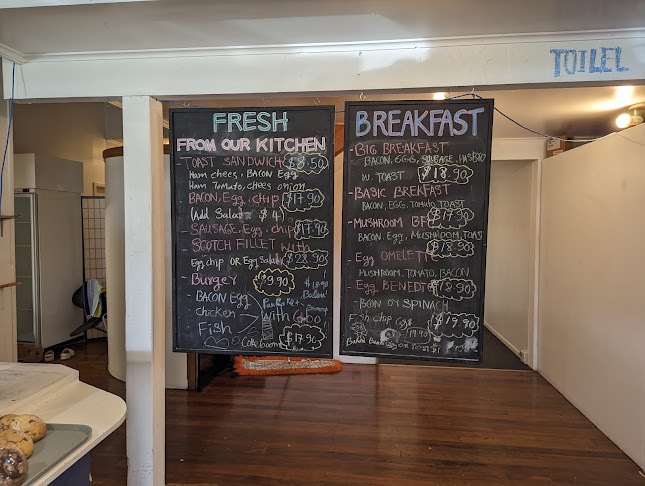 TOILEL
FRESH
FROM OUR KITCHEN
-TOAST SANDWICH $8.50
Ham chees, BACON Egg
Ham Tomato, chees onion
-BACON, Egg, chip $17.90
(Add Salad $4)
-SAUSAGE, Egg, chip $17.90
-SCOTCH FILLET with
Egg, chip OR Egg Salad $28.90
-Burger $9.90
-BACON Egg
chicken With
Fish
$17.90
BREAKFAST
-BIG BREAKFAST
BACON, EGG,
W. TOAST $18.90
-BASIC BREKFAST
BACON, EGG, Tomato, TOAST
$17.90
-MUSHROOM BF
BACON, Egg, MUSHROOM, TOAST
$18.90
-Egg OMELETTE
MUSHROOM, TOMATO, BACON
-Egg BENEDICT $18.90
-BCON OR SPINACH
Fish chip $19.90